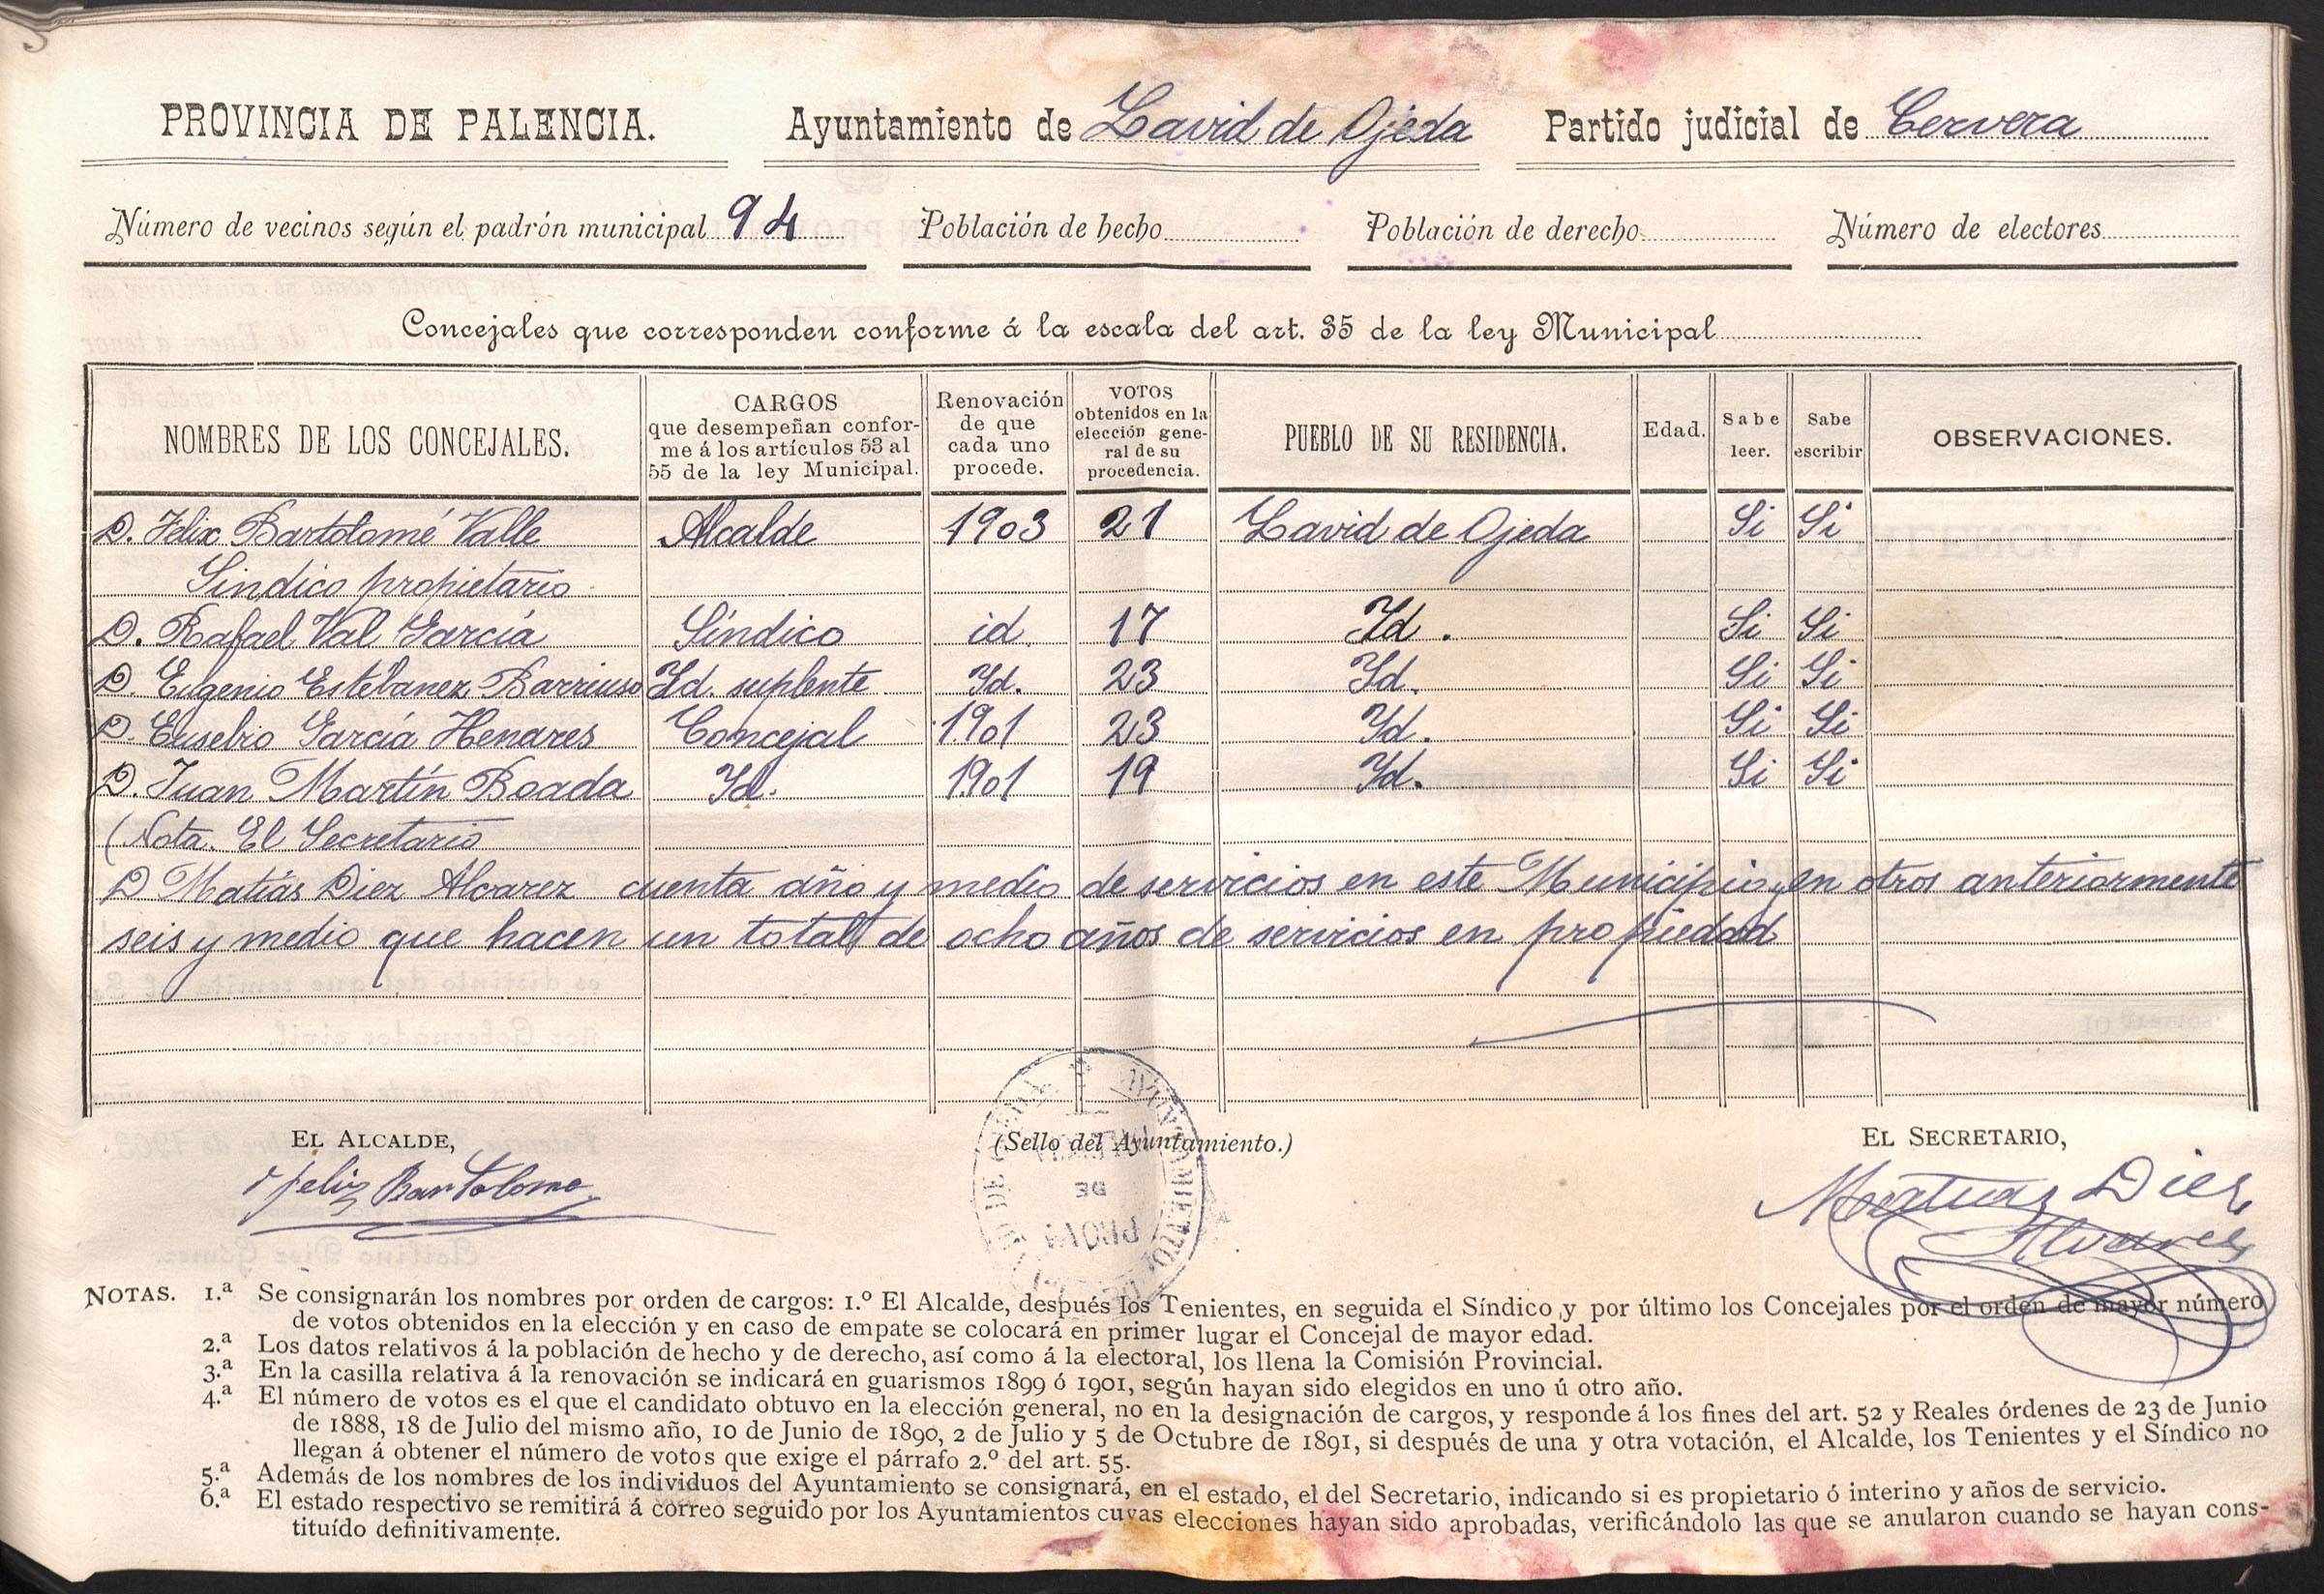 PROVINCIA DE PALENCIA. Ayuntamiento de Lavid de Ojeda Partido judicial de Cervera
Número de vecinos según el padrón municipal 94 Población de hecho Población de derecho Número de electores
Concejales que corresponden conforme á la escala del art. 35 de la ley Municipal
NOMBRES DE LOS CONCEJALES. CARGOS que desempeñan conforme á los artículos 53 al 55 de la ley Municipal. Renovación de que cada uno procede. VOTOS obtenidos en la elección general de su procedencia. PUEBLO DE SU RESIDENCIA. Edad. Sabe leer. Sabe escribir OBSERVACIONES.
D. Felix Bartolomé Valle Alcalde 1903 21 Lavid de Ojeda Si Si
Sindico propietario
D. Rafael Val García Síndico id 17 Id. Si Si
D. Eugenio Estébanez Barriuso Id. suplente Id. 23 Id. Si Si
D. Eusebio García Henares Concejal 1901 23 Id. Si Si
D. Juan Martín Boada Id. 1901 19 Id. Si Si
(Nota. El Secretario
D Matías Diez Alvarez cuenta año y medio de servicios en este Municipio y en otros anteriormente
seis y medio que hacen un total de ocho años de servicios en propiedad
EL ALCALDE, (Sello del Ayuntamiento.) EL SECRETARIO,
Felix Bartolome Matias Diez
Alvarez
NOTAS. 1.ª Se consignarán los nombres por orden de cargos: 1.º El Alcalde, después los Tenientes, en seguida el Síndico y por último los Concejales por el orden de mayor número
de votos obtenidos en la elección y en caso de empate se colocará en primer lugar el Concejal de mayor edad.
2.ª Los datos relativos á la población de hecho y de derecho, así como á la electoral, los llena la Comisión Provincial.
3.ª En la casilla relativa á la renovación se indicará en guarismos 1899 ó 1901, según hayan sido elegidos en uno ú otro año.
4.ª El número de votos es el que el candidato obtuvo en la elección general, no en la designación de cargos, y responde á los fines del art. 52 y Reales órdenes de 23 de Junio
de 1888, 18 de Julio del mismo año, 10 de Junio de 1890, 2 de Julio y 5 de Octubre de 1891, si después de una y otra votación, el Alcalde, los Tenientes y el Síndico no
llegan á obtener el número de votos que exige el párrafo 2.º del art. 55.
5.ª Además de los nombres de los individuos del Ayuntamiento se consignará, en el estado, el del Secretario, indicando si es propietario ó interino y años de servicio.
6.ª El estado respectivo se remitirá á correo seguido por los Ayuntamientos cuyas elecciones hayan sido aprobadas, verificándolo las que se anularon cuando se hayan cons-
tituído definitivamente.